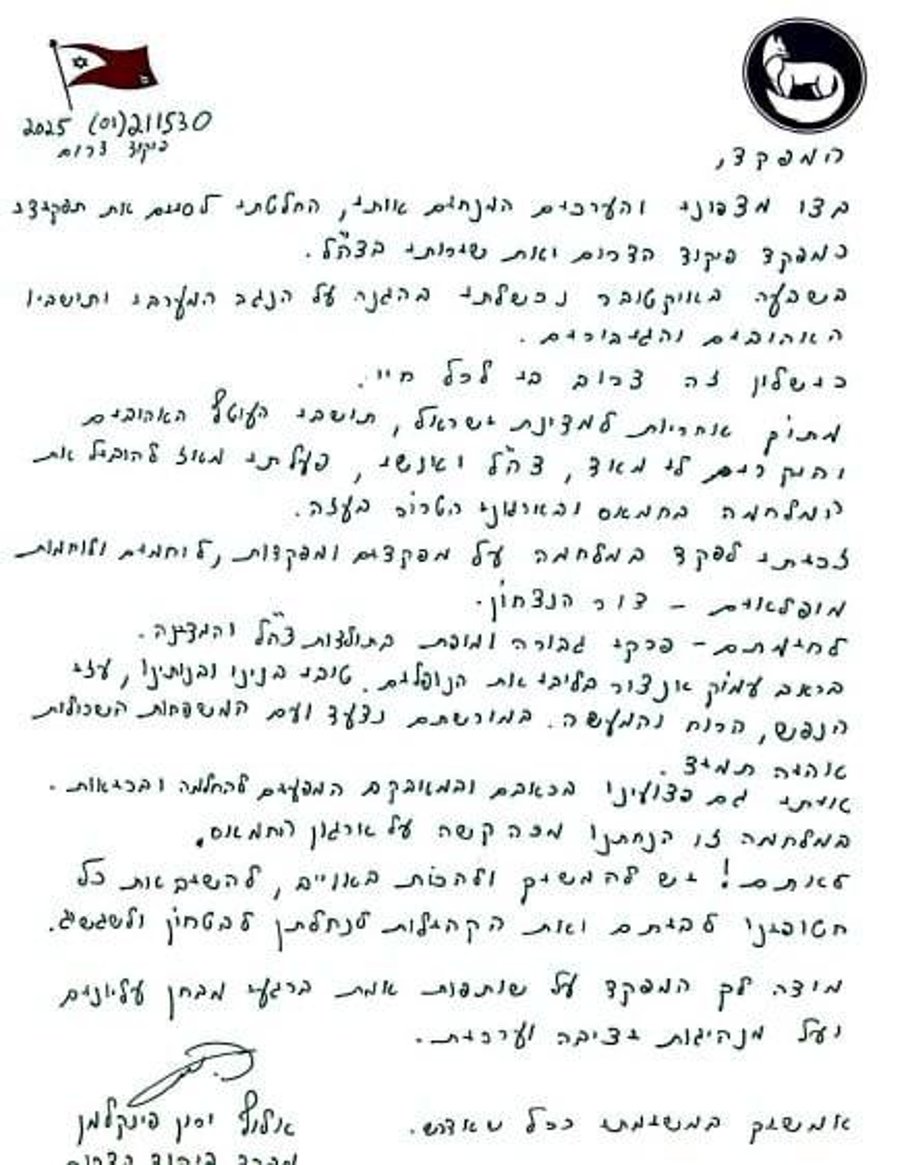 211530 (01) 2025
פיקוד דרום
המפקד,
בצו מצפוני והערכים המנחים אותי, החלטתי לסיים את תפקידי
כמפקד פיקוד הדרום ואת שירותי בצה"ל.
בשבעה באוקטובר נכשלתי בהגנה על הנגב המערבי ותושביו
האהובים והגיבורים.
כישלון זה צרוב בי לכל חיי.
מתוך אחריות למדינת ישראל, תושבי העוטף האהובים
לי מאד, צה"ל ואנשיו, פעלתי מאז להוביל את
המלחמה בחמאס ובארגוני הטרור בעזה.
זכיתי לפקד במלחמה על מפקדים ומפקדות, לוחמים ולוחמות
מופלאים - דור הנצחון.
לחימתם - פרקי גבורה ומופת בתולדות צה"ל והמדינה.
בכאב עמוק אנצור בליבי את הנופלים. טובי בנינו ובנותינו, עזי
הנפש, הרוח והמעשה. במורשתם נצעד ועם המשפחות השכולות
אהיה תמיד.
איתי גם פצועינו בכאבם ובמאבקם המפעים להחלמה ובריאות.
במלחמה זו הנחתנו מכה קשה על ארגון החמאס.
לא תם! יש להמשיך ולהכות באויים, להשיב את כל
חטופינו לביתם ואת הקהילות לנחלתן לבטחון ולשגשוג.
מודה לך המפקד על שותפות אמת ברגעי מבחן עליונים
ועל מנהיגות יציבה וערכית.
אמשיך במשימתי ככל שאדרש.
אלוף ירון פינקלמן
מפקד פיקוד הדרום